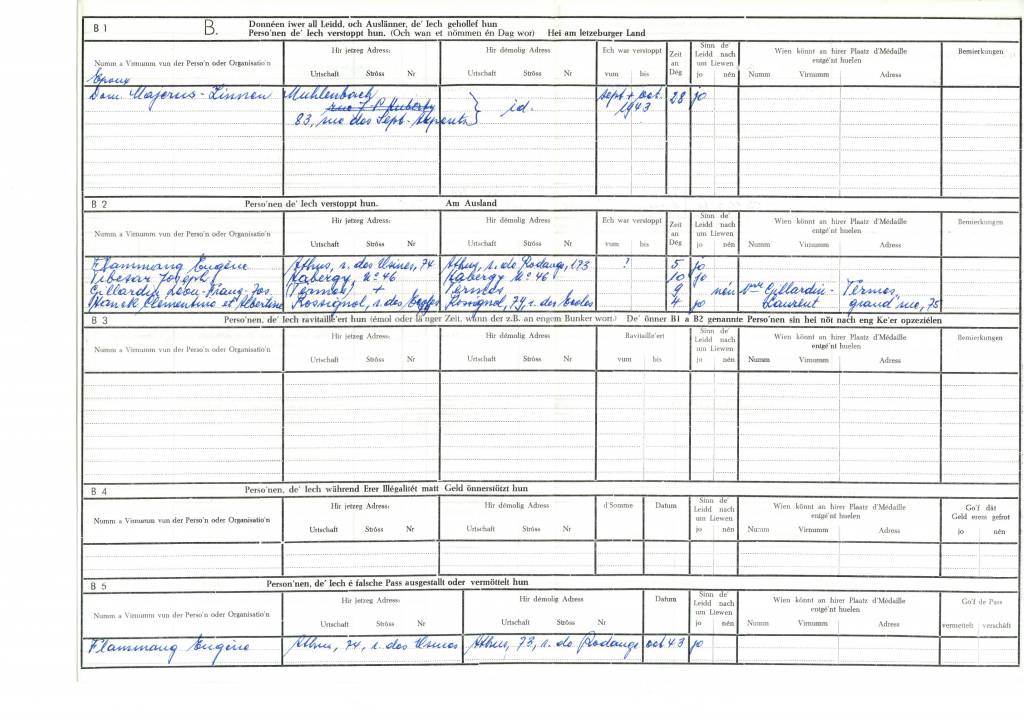 B 1 B. Donnéen iwer all Leidd, och Auslänner, de' Iech gehollef hun
Perso'nen de' Iech verstoppt hun. (Och wan et nömmen én Dag wor) Hei am letzeburger Land
Numm a Virnumm vun der Perso'n oder Organisatio'n
Hir jetzeg Adress:
Urtschaft Ströss Nr
Hir démolig Adress
Urtschaft Ströss Nr
Ech war verstoppt
vum bis
Zeit an Dég
Sinn de' Leidd nach um Liewen
jo nén
Wien könnt an hirer Plaatz d'Médaille entgé'nt huelen
Numm Virnumm Adress
Bemierkungen
Epoux
Dom. Majerus-Linnen Muhlenbach id. sept + oct. 1943 28 jo
83, rue des Sept-Arpents
B 2 Perso'nen de' Iech verstoppt hun. Am Ausland
Numm a Virnumm vun der Perso'n oder Organisatio'n
Hir jetzeg Adress:
Urtschaft Ströss Nr
Hir démolig Adress
Urtschaft Ströss Nr
Ech war verstoppt
vum bis
Zeit an Dég
Sinn de' Leidd nach um Liewen
jo nén
Wien könnt an hirer Plaatz d'Médaille entgé'nt huelen
Numm Virnumm Adress
Bemierkungen
Flammang Eugène Athus, r. des Usines, 74 Athus, r. de Rodange, 173 ? 5 jo
Tibesar Joseph Habergy No 46 Habergy No 46 10 jo
Gillardin Léon-Franz-Jos. (Termes) + Termes 9 nén Gillardin- Termes
Hanck Clémentine et Albertine Rossignol, r. des Rossignol, 79 r. des Ecoles 4 jo Laurent grand'rue, 75
B 3 Perso'nen, de' Iech ravitaille'ert hun (émol oder länger Zeit, wann der z.B. an engem Bunker wort) De' önner B1 a B2 genannte Perso'nen sin hei nöt nach eng Ke'er opzeziélen
Numm a Virnumm vun der Perso'n oder Organisatio'n
Hir jetzeg Adress:
Urtschaft Ströss Nr
Hir démolig Adress
Urtschaft Ströss Nr
Ravitaille'ert
vum bis
Sinn de' Leidd nach um Liewen
jo nén
Wien könnt an hirer Plaatz d'Médaille entgé'nt huelen
Numm Virnumm Adress
Bemierkungen
B 4 Perso'nen, de' Iech während Erer Illégalitét matt Geld önnerstötzt hun
Numm a Virnumm vun der Perso'n oder Organisatio'n
Hir jetzeg Adress:
Urtschaft Ströss Nr
Hir démolig Adress
Urtschaft Ströss Nr
d'Somme
Datum
Sinn de' Leidd nach um Liewen
jo nén
Wien könnt an hirer Plaatz d'Médaille entgé'nt huelen
Numm Virnumm Adress
Go'f dät Geld erem gefrot
jo nén
B 5 Person'nen, de' Iech é falsche Pass ausgestallt oder vermöttelt hun
Numm a Virnumm vun der Perso'n oder Organisatio'n
Hir jetzeg Adress:
Urtschaft Ströss Nr
Hir démolig Adress
Urtschaft Ströss Nr
Datum
Sinn de' Leidd nach um Liewen
jo nén
Wien könnt an hirer Plaatz d'Médaille entgé'nt huelen
Numm Virnumm Adress
Go'f de Pass
vermettelt verschäft
Flammang Eugène Athus, 74, r. des Usines Athus, 73, r. de Rodange oct 43 jo